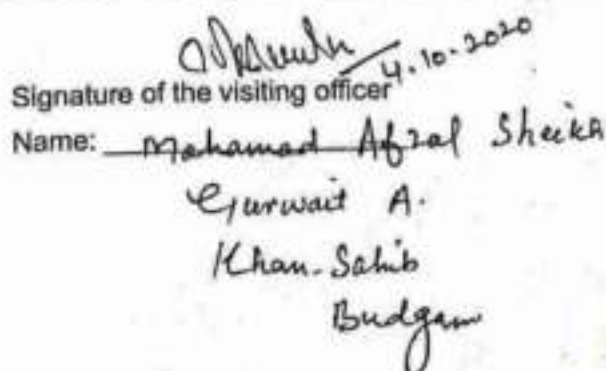 4.10.2020
Signature of the visiting officer
Name: Mohamad Afzal Sheikh
Gurwait A.
Khan-Sahib
Budgam